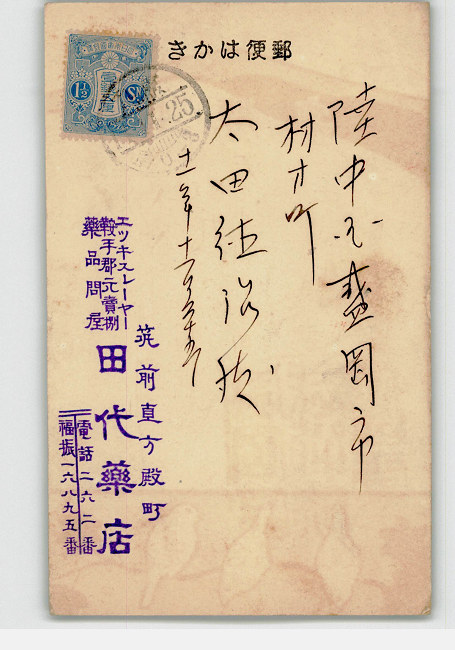 郵便はかき
陸中国盛岡市
材木町
太田徳治様
十一年十二月二十五
エツキスレーヤー
鞍手郡一元賣捌
藥品問屋
筑前直方殿町
田代藥店
電話二六二番
福振一六八九五番
1½ Sn
25